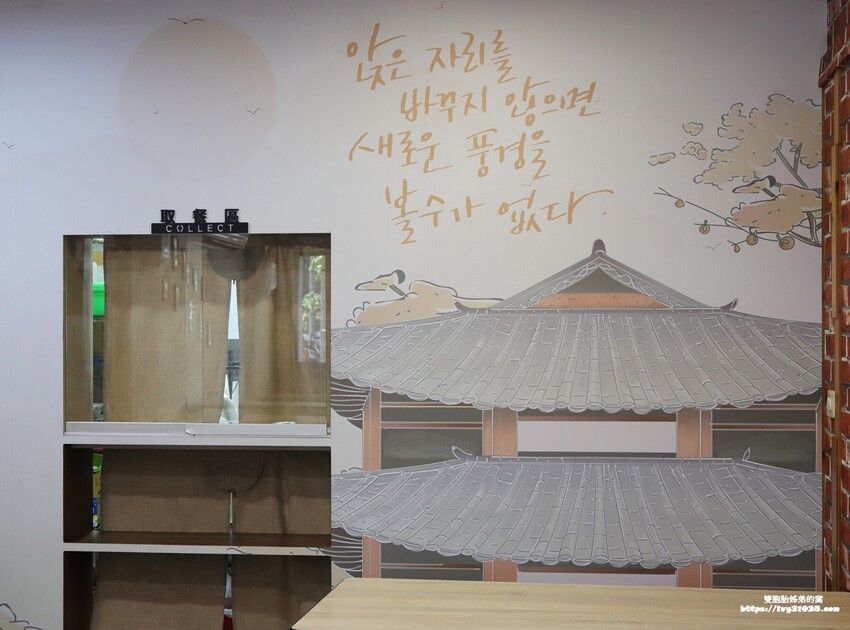 앉은 자리를
바꾸지 않으면
새로운 풍경을
볼수가 없다.
取餐區
COLLECT
雙胞胎姊弟的窩
https://ivy31025.com